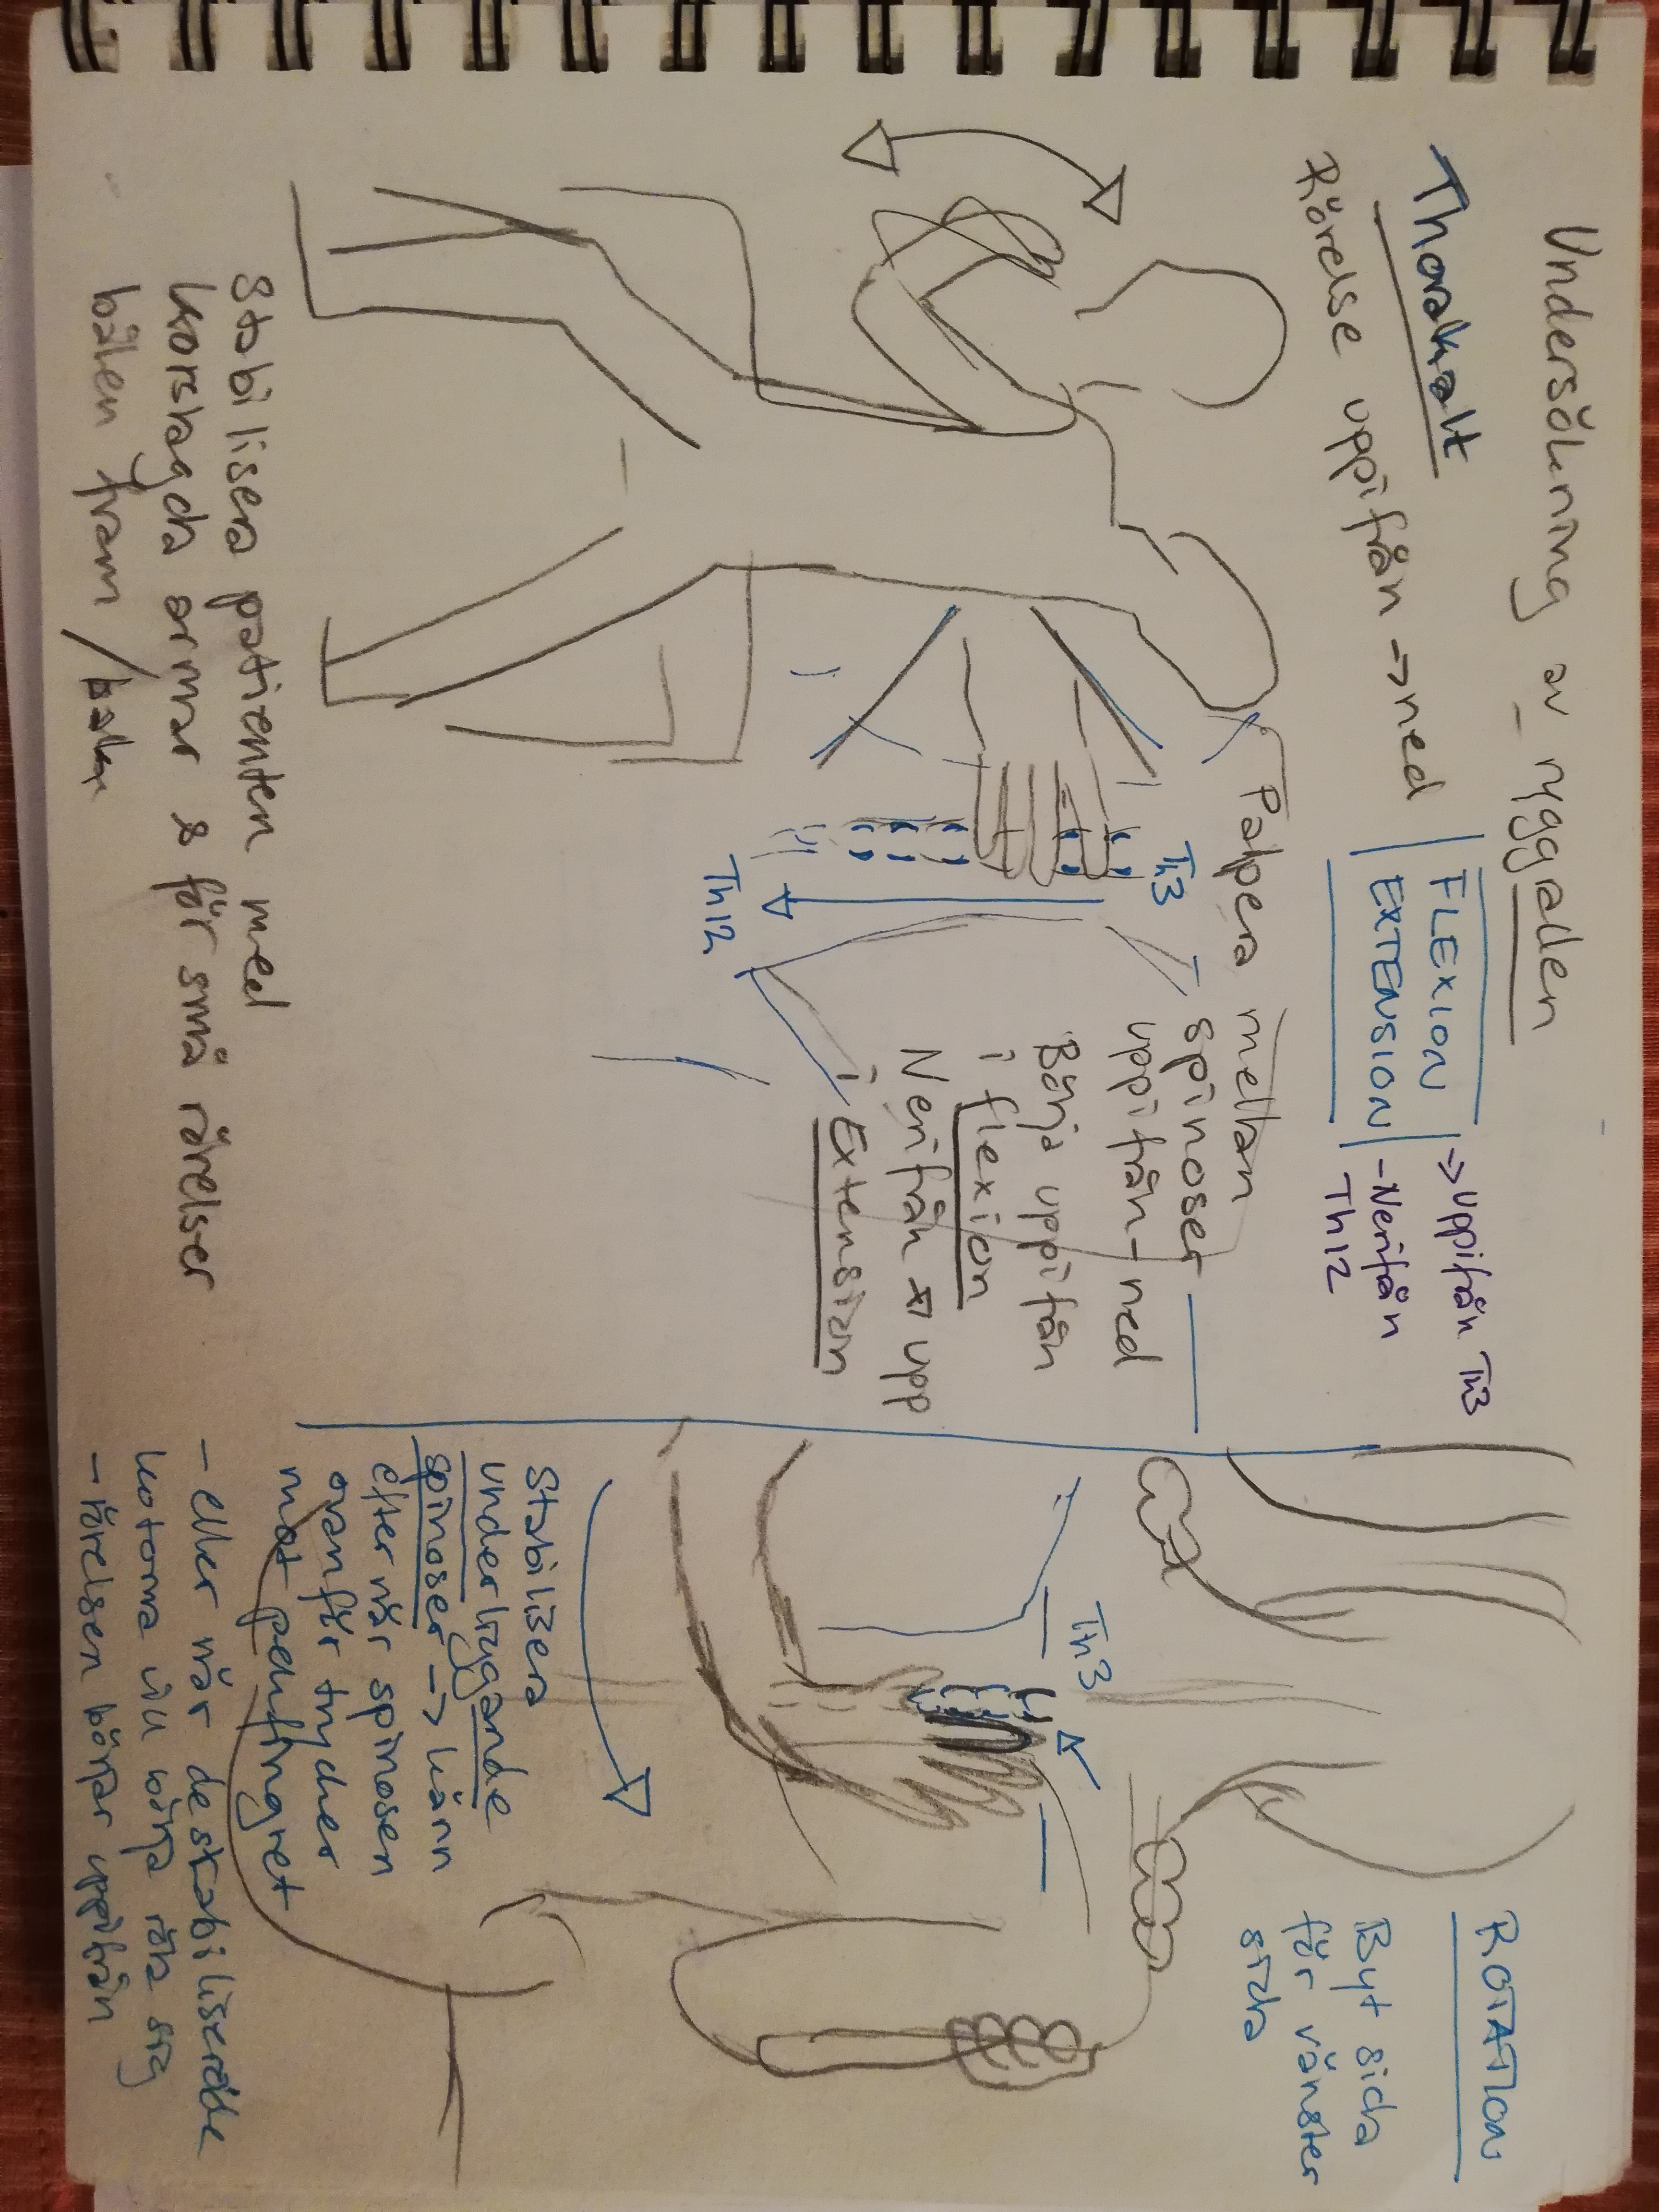 Undersökning av ryggraden
Thorakalt
Rörelse uppifrån → ned
FLEXION
EXTENSION
→ uppifrån Th3
- Nerifrån
Th12
Palpera mellan
spinoser
uppifrån - ned
Börja uppifrån
i flexion
Nerifrån → upp
i Extension
Th3
Th12
Stabilisera patienten med
korslagda armar & för små rörelser
bålen fram / bakåt
ROTATION
Byt sida
för vänster
sida
Th3
Stabilisera
underliggande
spinoser → känn
efter när spinosen
ovanför trycker
mot pekfingret
- eller när de stabiliserade
kotorna vill börja röra sig
- rörelsen börjar uppifrån